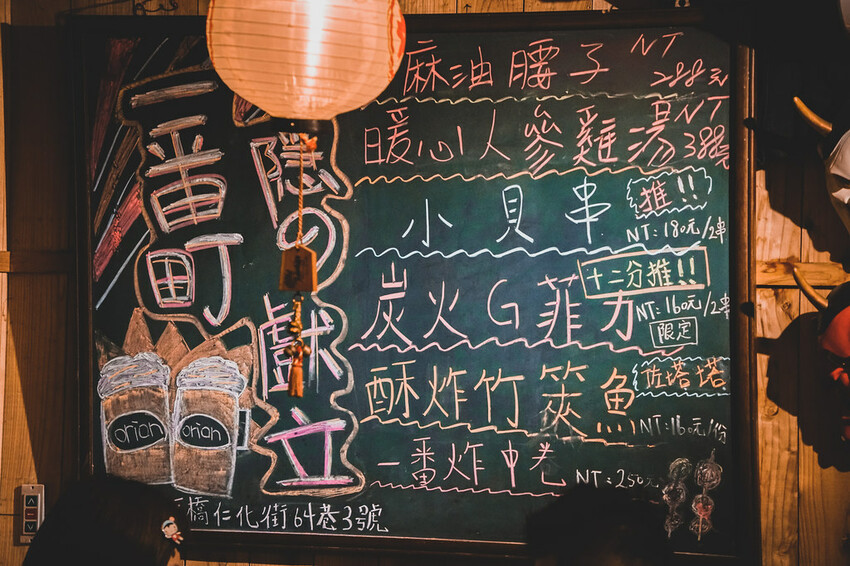 一番町
隠の献立
麻油腰子 NT 288元
暖心人參雞湯 NT 388元
小貝串 推!! NT:180元/2串
炭火G菲力 十二分推!! NT:160元/2串 限定
酥炸竹筴魚 佐塔塔 NT:160元/份
一番炸中卷 NT:250
orian
orian
橋仁化街64巷3號